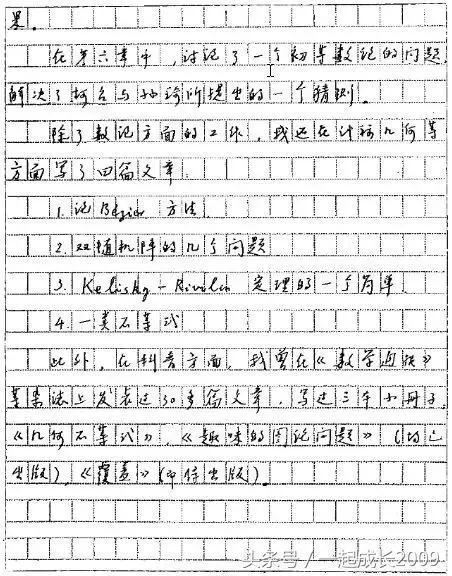 果。
在第六章中,讨论了一个初等数论的问题,
解决了柯召与孙琦所提出的一个猜测。
除了数论方面的工作,我还在计算几何等
方面写了四篇文章.
1. 论Bézier 方法.
2. 双随机阵的几个问题
3. Kelisky-Rivlin 定理的一个简单
4. 一类不等式
此外,在科普方面,我曾在《数学通讯》
等杂志上发表过30多篇文章,写过三本小册子,
《几何不等式》,《趣味的图论问题》(均已
出版),《覆盖》(即将出版)。
头条号/一起成长2009